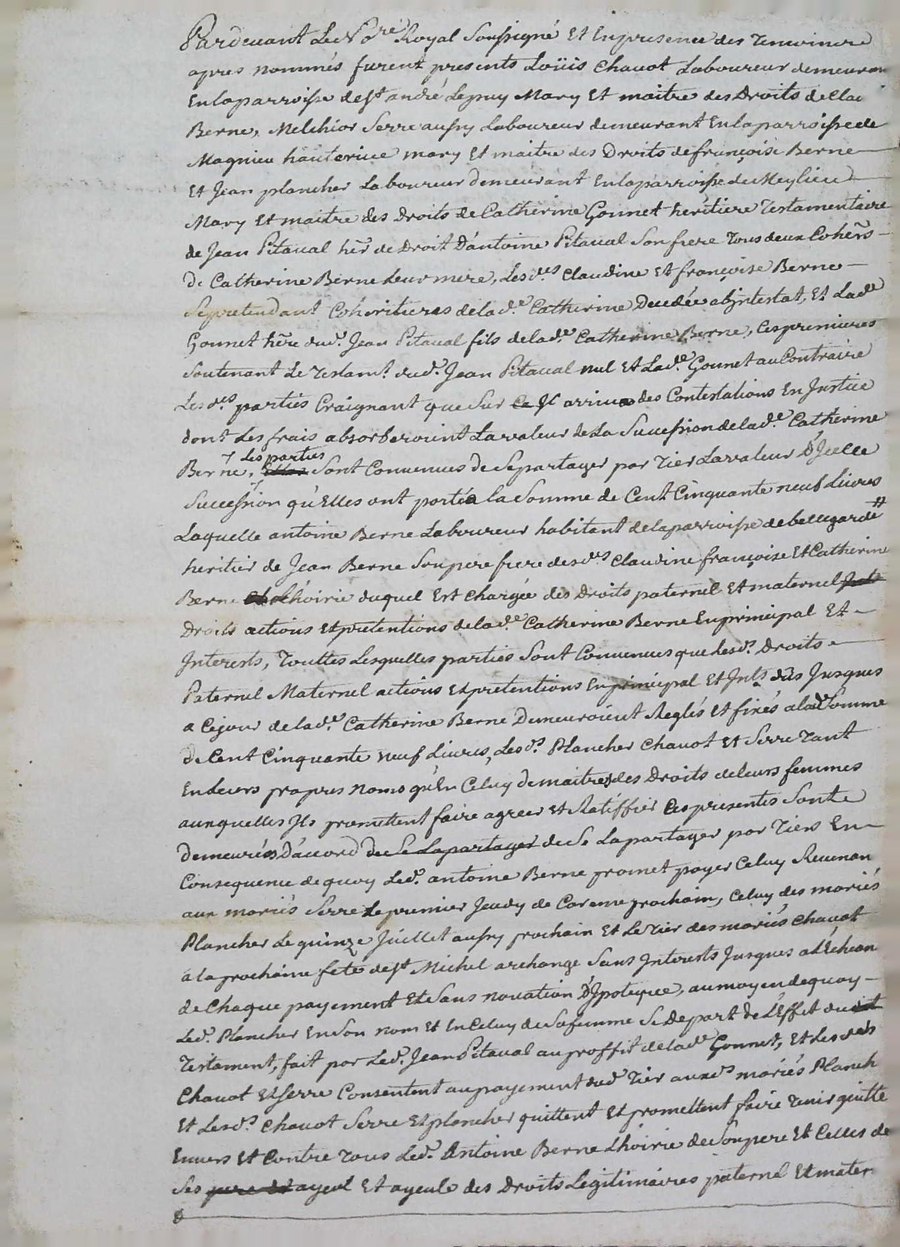 Pardevant Le No.re Royal Soussigné Et En presence des Temoins
apres nommés furent presents Loüis Chauot Laboureur demeuran
En la parroisse de St andré Le puy Mary Et maitre des Droits de Clau
Berne, Melchior Serre aussy Laboureur demeurant En la parroisse de
Magnieu hauterive mary Et maitre des Droits de françoise Berne
Et Jean plancher Laboureur demeurant En la parroisse de Meylieu
Mary Et maitre des Droits de Catherine Gonnet heritiere Testamentaire
de Jean Pitaval her. de Droit D'antoine Pitaval Son frere Tous deux Cohers
de Catherine Berne Leur mere, Les d.es Claudine Et françoise Berne
Se pretendant Coheritieres de la d.e Catherine Decedée abintestat, Et La d.e
Gonnet hre du d. Jean Pitaval fils de la d.e Catherine Berne, Ces premieres
Soutenant Le Testam.t du d. Jean Pitaval nul Et La d.e Gonnet au Contraire
Les d.es parties Craignant que Sur ce Jl arriva des Contestations En Justice
dont Les frais absorberoint La valeur de La Succession de la d.e Catherine
Berne, Les parties Sont Convenues de Se partager par Tier La valeur D'Jcelle
Succession qu'Elles ont portéa la Somme de Cent Cinquante neuf Livres
Laquelle antoine Berne Laboureur habitant de la parroisse de bellegarde
heritier de Jean Berne Son pere frere des d.es Claudine françoise Et Catherine
Berne L'hoirie duquel Est Chargée des Droits paternel Et maternel
Droits actions Et pretentions de la d.e Catherine Berne En principal Et
Interests, Touttes Lesquelles parties Sont Convenues que Les d. Droits
Paternel Maternel actions Et pretentions En principal Et Jnts Jusques
a Ce jour de la d.e Catherine Berne Demeuroient Reglés Et fixés a la d. Somme
de Cent Cinquante neuf Livres, Les d. Plancher Chauot Et Serre Tant
En Leurs propres Noms qu'En Celuy de maitres des Droits de Leurs femmes
auxquelles Jls promettent faire agreer Et Ratiffier Ces presentes Sont
demeurés D'accord de Se La partager de Se La partager par Tiers En
Consequence de quoy Le d. antoine Berne promet payer Celuy Revenan
aux mariés Serre Le premier Jeudy de Careme prochain, Celuy des mariés
Plancher Le quinze Juillet aussy prochain Et Le Tier des mariés Chauot
a la prochaine fete de St Michel archange Sans Interests Jusques a L'Echean
de Chaque payement Et Sans novation D'Ipoteque, au moyen de quoy
Le d. Plancher En Son nom Et En Celuy de Sa femme Se Depart de L'Effet du
Testament, fait par Le d. Jean Pitaval au proffit de la d.e Gonnet, Et Les d.es
Chauot Et Serre Consentent au payement du d. Tier aux d.s mariés Planch
Et Les d. Chauot Serre Et plancher quittent Et promettent faire Tenir quitte
Envers Et Contre Tous Le d. Antoine Berne L'hoirie de Son pere Et Celles de
Ses pere Et ayeul Et ayeule des Droits Legitimaires paternel Et mater